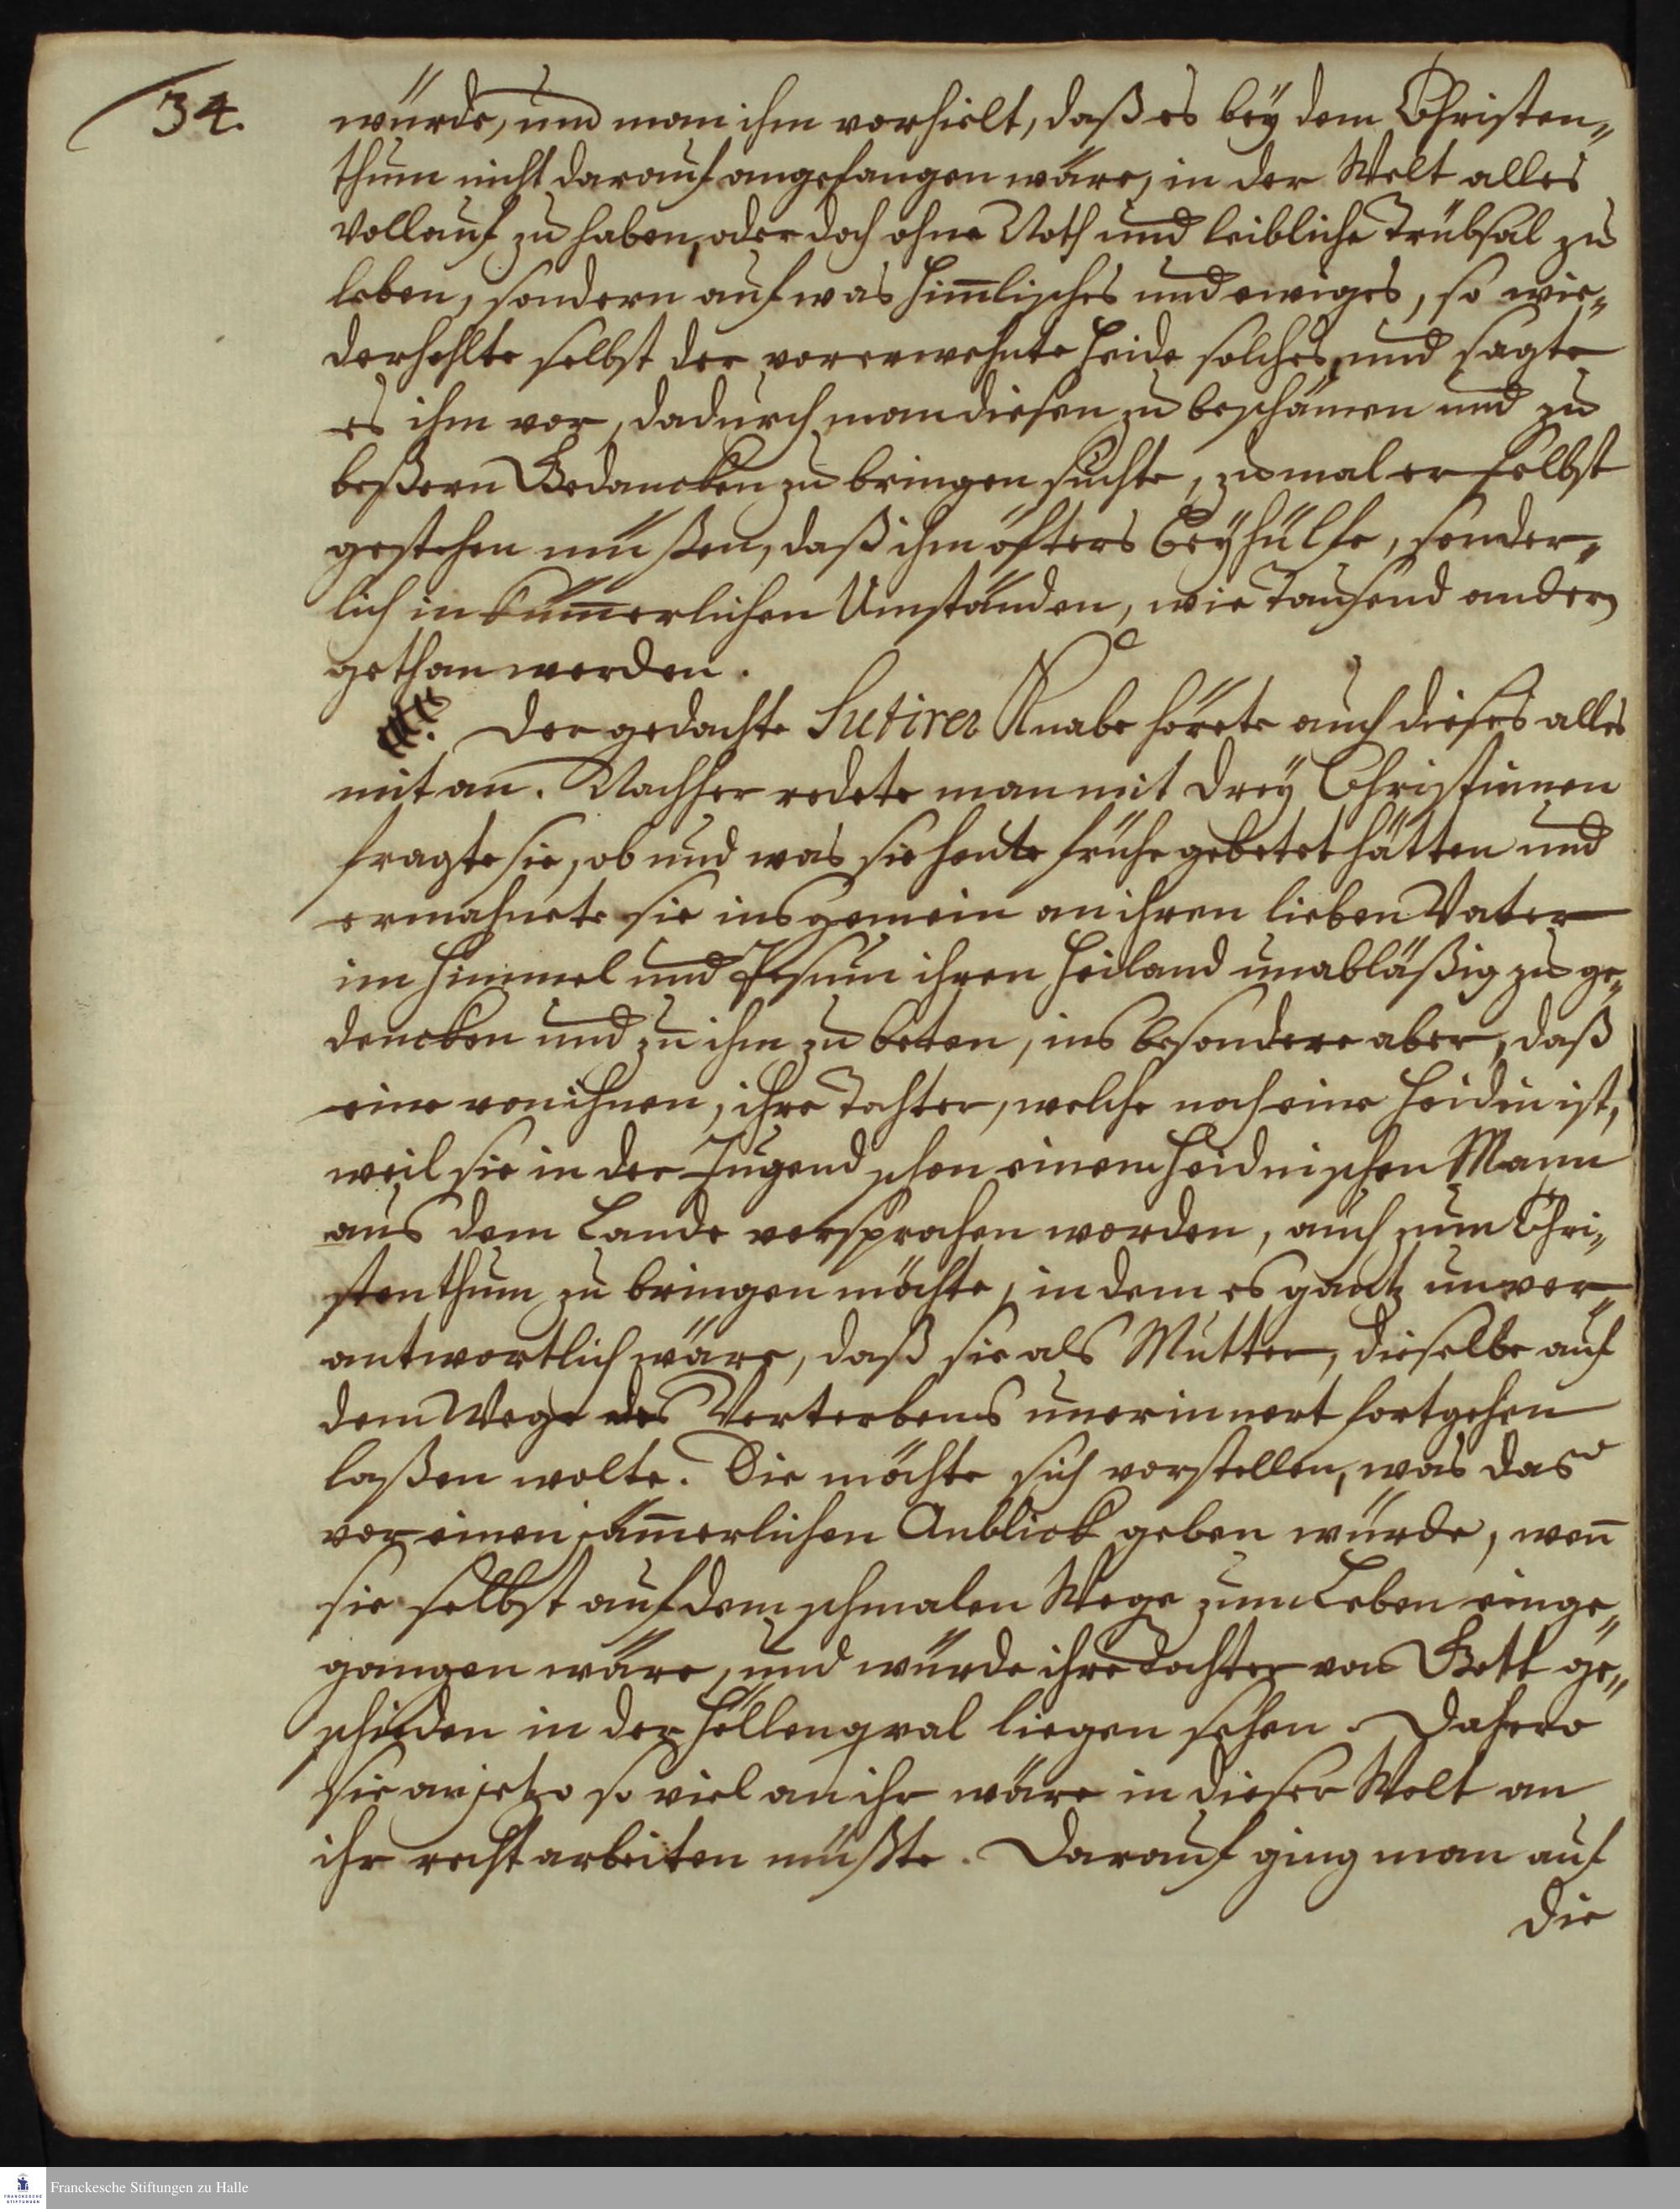 34.
würde, und man ihm vorhielt, daß es bey dem Christen„
thum nicht darauf angefangen wäre, in der Welt alles
vollauf zu haben, oder doch ohne Noth und leibliche Trübsal zu
leben, sondern auf was him̅lisches und ewiges, so wie„
derhohlte selbst der vorerwehnte Heide solches, und sagte
es ihm vor, dadurch man diesen zu beschämen und zu
beßern Gedancken zu bringen suchte, zumal er selbst
gestehen müßen, daß ihm öfters Beyhülfe, sonder„
lich in küm̅erlichen Umständen, wie tausend andern
gethan werden.
Der gedachte Sutirer Knabe hörete auch dieses alles
mit an. Nachher redete man mit drey Christinnen
fragte sie, ob und was sie heute frühe gebetet hätten und
ermahnete sie insgemein an ihren lieben Vater
im Himmel und Jesum ihren Heiland unabläßig zu ge„
dencken und zu ihm zu beten, ins besondere aber, daß
eine von ihnen, ihre Tochter, welche noch eine Heidin ist,
weil sie in der Jugend schon einem heidnischen Mann
aus dem Lande versprochen worden, auch zum Chri„
stenthum zu bringen möchte, in dem es gantz unver„
antwortlich wäre, daß sie als Mutter, dieselbe auf
dem Wege des Verterbens unerinnert fortgehen
laßen wolte. Die möchte sich vorstellen, was das
vor einen jäm̅erlichen Anblick geben würde, wen̅
sie selbst auf dem schmalen Wege zum Leben einge„
gangen wäre, und würde ihre Tochter von Gott ge„
schieden in der Höllenqval liegen sehen. Dahero
sie anjetzo so viel an ihr wäre in dieser Welt an
ihr recht arbeiten müßte. Darauf ging man auf
die
Franckesche Stiftungen zu Halle
FRANCKESCHE
STIFTUNGEN